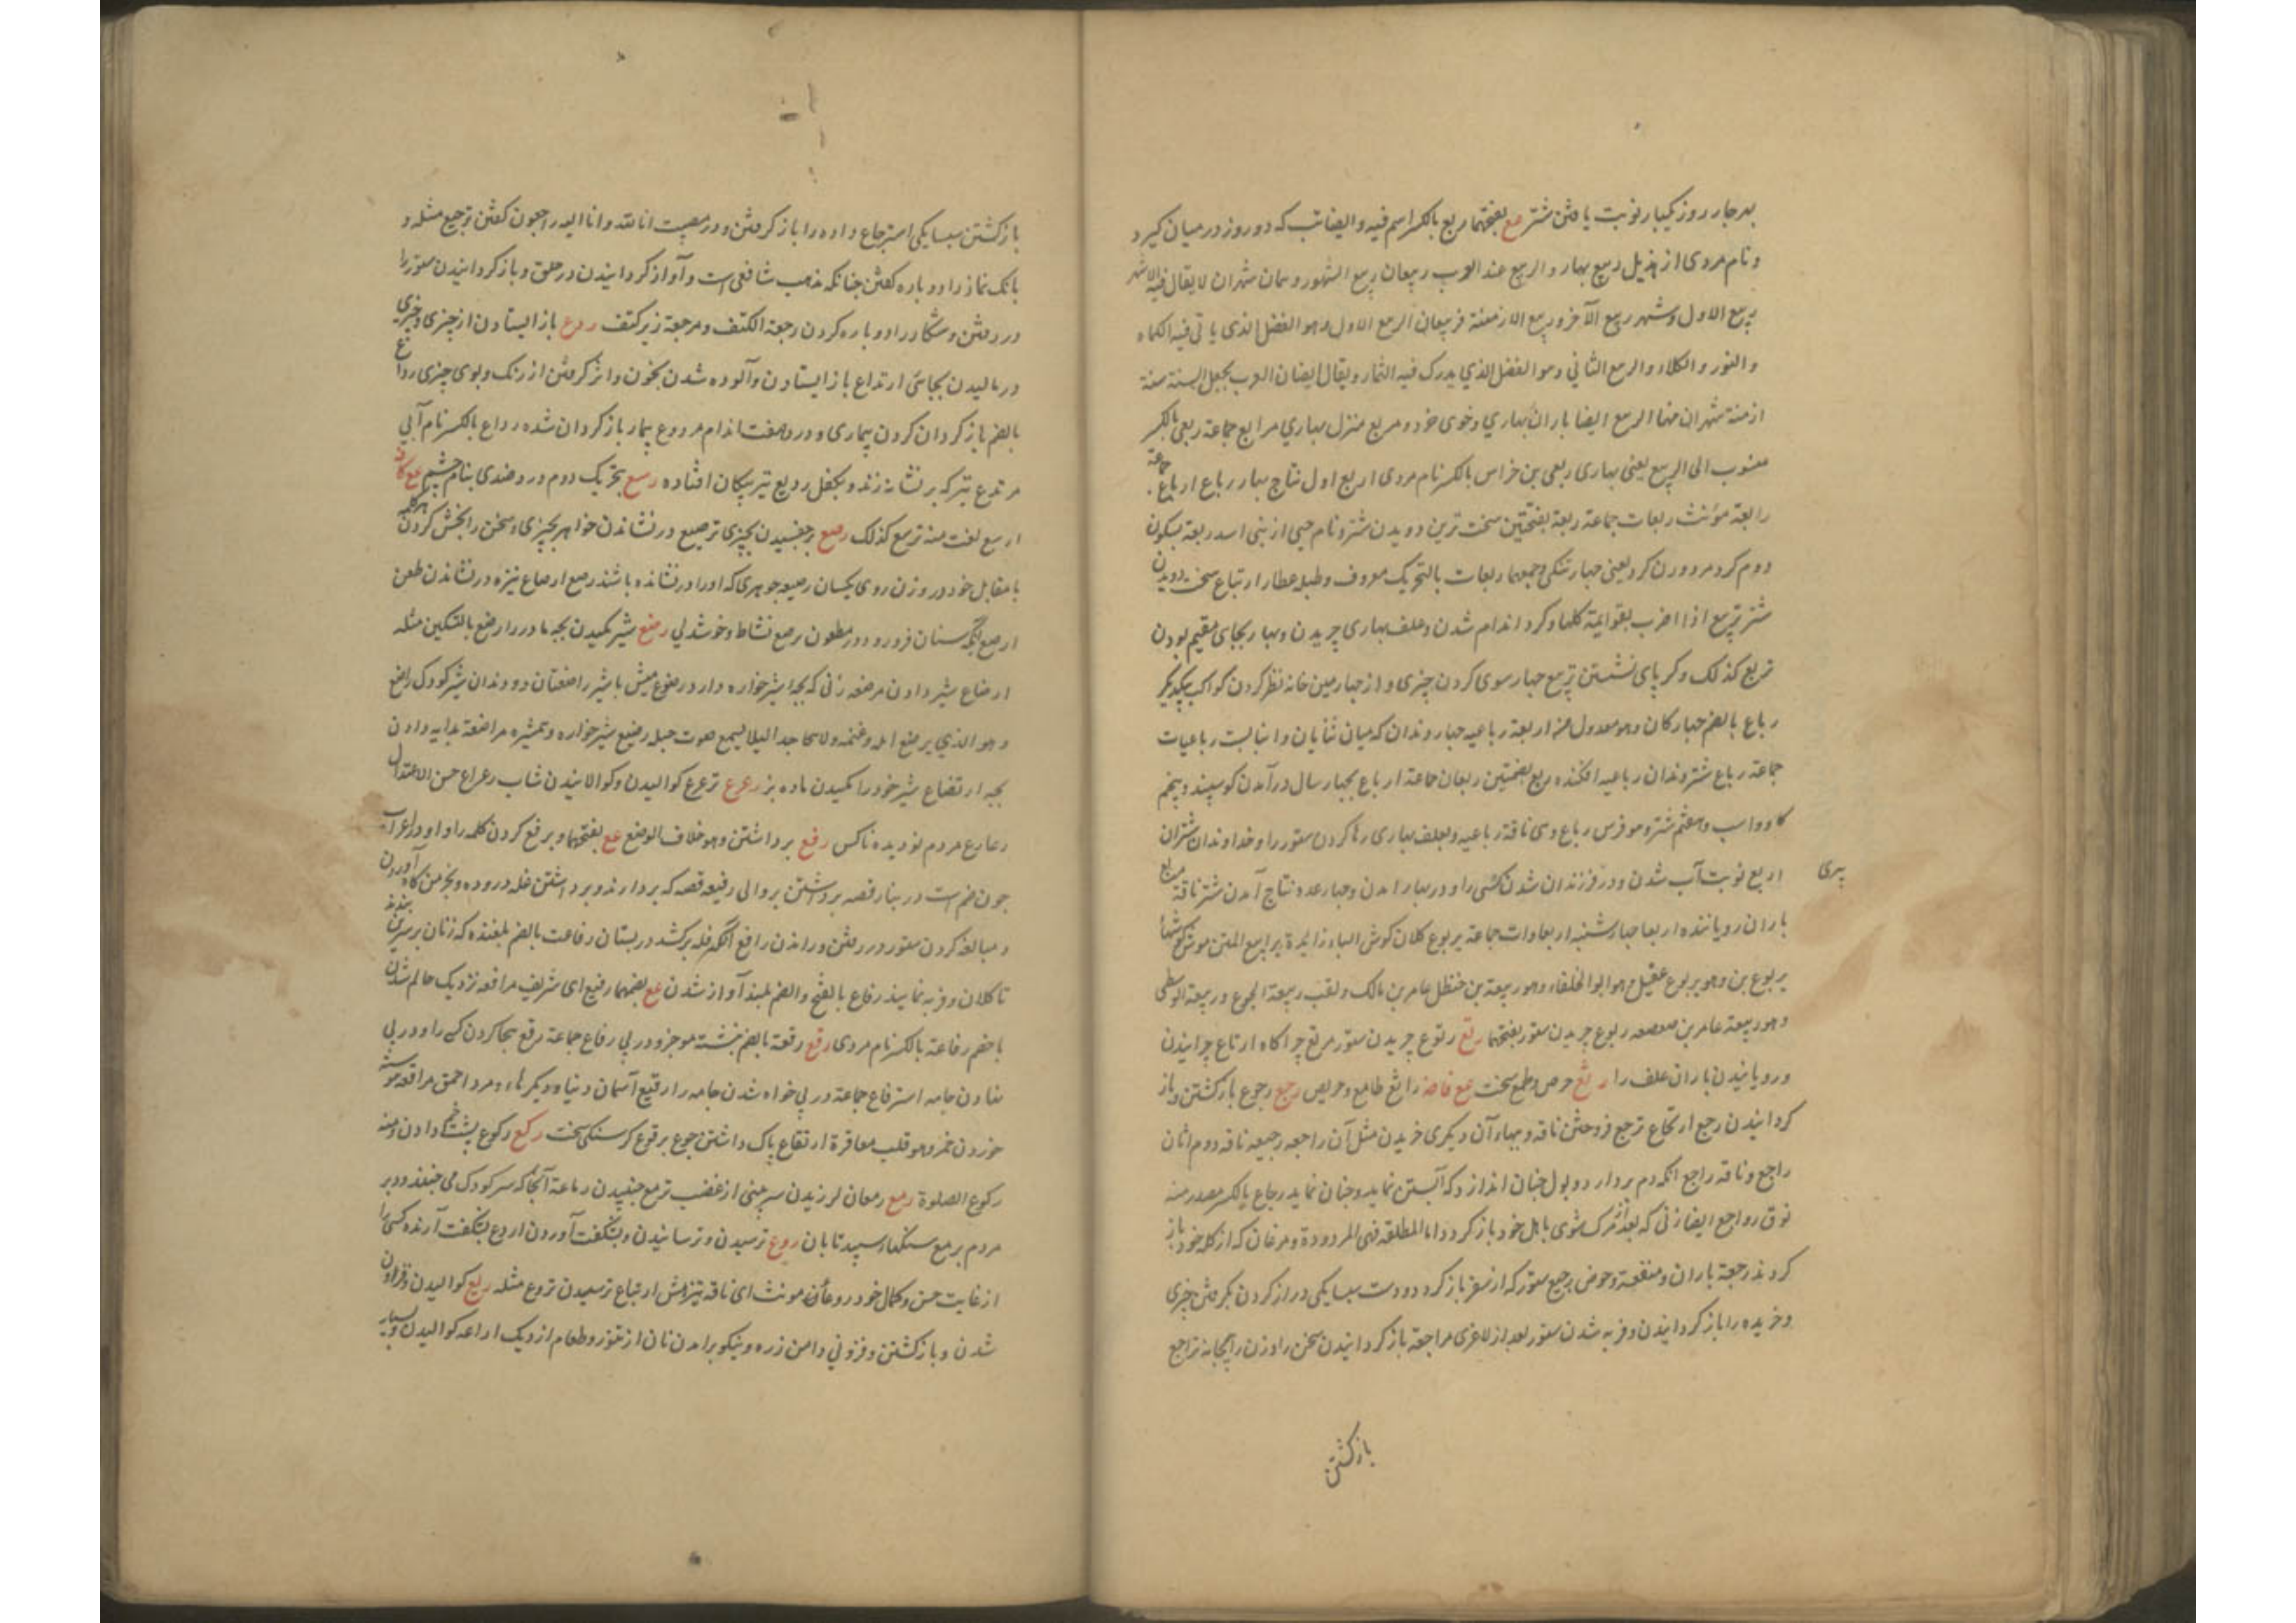 بهر چار روز یکبار نوبت یافتن شتر مع بفتحهما ربع بالکسر اسم فیه و ایضا تب که دو روز در میان کیرد
و نام مردی از هذیل ربیع بهار و الربیع عند العرب ربیعان ربیع الشهور و ربیع شهران لا یقال فیه الا شهر
ربیع الاول و شهر ربیع الآخر و ربیع الازمنة فربیعان الربیع الاول و هو الفصل الذی یاتی فیه الکماه
و النور و الکلاء و الربیع الثانی و هو الفصل الذی یدرک فیه الثمار و یقال ایضا ان العرب یجعل السنة ستة
ازمنة شهران منها الربیع ایضا باران بهاری و جوی خورد مربع منزل بهاری مرابع جماعة ربعی بالکسر
منسوب الی الربیع یعنی بهاری ربعی بن خراس بالکسر نام مردی ربع اول نتاج بهار رباع ارباع جماعة
رابعة مؤنث ربعات جماعة ربعة بفتحتین سخت ترین دویدن شتر و نام حیی از بنی اسد ربعة بسکون
دوم کرد مرد و زن کرد یعنی چهار تنکی و جمعها ربعات بالتحریک معروف و طبله عطار ارتباع سخت دویدن
شتر تربع اذا ضرب بقوایمه کلها و کرد اندام شدن و علف بهاری چریدن و بهار بجای مقیم بودن
تربع کذلک و کرد پای نشستن تربیع چهار سوی کردن چیزی و از چهارمین خانه نظر کردن کواکب بیکدیکر
رباع بالضم چهارکان و هو معدول من اربعة رباعیه چهار دندان که میان ثنایان و انیاب است رباعیات
جماعة رباع شتر دندان رباعیه افکنده ربع بضمتین ربعان جماعة ارباع بچهار سال درآمدن کوسپند و پنجم
کاو و اسب و هفتم شتر و هو فرس رباع و هی ناقة رباعیه و بعلف بهاری رها کردن ستور را و خداوندان شتران
اربع نوبت آب شدن و در فرزندان شدن کسی را و در بهار امدن و چهار عدد نتاج آمدن شتر ناقة مرباع
پیری
باران رویاننده اربعا چهارشنبه اربعاوات جماعة یربوع کلان کوش الیاء زایدة یرابیع المتن کوشتها
یربوع بن و هو یربوع عقیل و هو ابو الخلفاء و هو ربیعة بن حنظل عامر بن مالک و لقب ربیعة الجوع و ربیعة الوسطی
و هو ربیعة عامر بن صعصعه ربوع چریدن ستور بفتحها رتع رتوع چریدن ستور مرتع چراکاه ارتاع چرانیدن
و رویانیدن باران علف را رثع حرص و طمع سخت مع فاضه راثع طامع و حریص رجع رجوع بازکشتن و باز
کردانیدن رجع ارتجاع ترجع فروختن ناقه و ببهاء آن دیکری خریدن مثل آن راجعه رجیعه ناقه دوم اتان
راجع و ناقه راجع انکه دم بردارد و بول چنان اندازد که آبستن نماید و چنان نماید رجاع بالکسر مصدر منه
نوق رواجع ایضا زنی که بعد از مرک شوی باهل خود باز کردد و اما المطلقه فهی المردودة و مرغان که از کله خود باز
کردند رجعة باران و منفعة و حوض رجیع ستور که از سفر باز کردد و دست سبایکی دراز کردن بکرفتن چیزی
و خریده را باز کردانیدن و فربه شدن ستور بعد از لاغری مراجعة باز کردانیدن سخن را و زن را بخانه تراجع
بازکشتن
بازکشتن سبایکی استرجاع داده را باز کرفتن و در مصیبت انا لله و انا الیه راجعون کفتن ترجیع مثله و
بانک نماز را دوباره کفتن چنانکه مذهب شافعی است و آواز کردانیدن در حلق و باز کردانیدن ستور را
در رفتن و شکار را دوباره کردن رجعة الکتف و مرجعة زیر کتف ردع باز ایستادن از چیزی و چیزی
در مالیدن بجایی ارتداع باز ایستادن و آلوده شدن بخون و اثر کرفتن از رنک و بوی چیزی رداع
بالضم باز کردان کردن بیماری و درد هفت اندام مردوع بیمار باز کردان شده رداع بالکسر نام آبی
مرتدع تیر که بر نشانه زند و بکفل ردیع تیر پیکان افتاده رسع بتحریک دوم دردمندی بنام چشم مع کاف
ارسع لغت منه ترسع کذلک رصع برچفسیدن بچیزی ترصیع درنشاندن جواهر بچیزی و سخن را بخش کردن هر کلمه
با مقابل خود در وزن روی یکسان رصیعه جوهری که او را درنشانده باشند رصع ارصاع نیزه درنشاندن طعن
ارصع انکه سنان فرو رود در مطعون رصع نشاط و خوشدلی رضع شیر مکیدن بچه مادر را رضع بالتسکین مثله
ارضاع شیر دادن مرضعه زنی که بچه شیرخواره دارد رضوع میش با شیر راضعتان دو دندان شیر کودک راضع
و هو الذی یرضع ابله و غنمه و لا یحلبها لیلا یسمع صوت حلبه رضیع شیرخواره و همشیره مراضعة بدایه دادن
بچه ارتضاع شیر خود را مکیدن ماده بز رعرع ترعرع کوالیدن و کوالانیدن شاب رعراع حسن الاعتدال
رعارع مردم نودیده ناکس رفع برداشتن و هو خلاف الوضع مع بفتحهما و برفع کردن کلمه را و او در اعراب
چون ضم است در بنا رقصه برداشتن بر والی رفیعه قصه که بردارند و برداشتن غله دروده و بخرمن کاه آوردن
و مبالغه کردن ستور در رفتن و راندن رافع انکه غله برکشد در بستان رفاعت بالضم بلغنده که زنان بر سرین بندند
تا کلان و فربه نمایند رفاع بالفتح و الضم بلند آواز شدن مع بضمهما رفیع ای شریف مرافعه نزدیک حاکم شدن
با خصم رفاعة بالکسر نام مردی رقع رقعة بالضم نبشته موجز و در پی رقاع جماعة رقع هجا کردن کسی را و در پی
نهادن جامه استرقاع جماعة در پی خواه شدن جامه را رقیع آسمان دنیا و دیکرها و مرد احمق مراقعه همیشه
خوردن خمر و هو قلب معاقرة ارتقاع پاک داشتن جوع یرقوع کرسنکی سخت رکع رکوع پشت خم دادن و منه
رکوع الصلوة رمع رمعان لرزیدن سر بینی از غضب ترمع جنبیدن رماعة آنجا که سر کودک می جنبد و در
مردم یرمع سنکهاء سپید تابان روع ترسیدن و ترسانیدن و بشکفت آوردن اروع بشکفت آرنده کسی را
از غایت حسن و کمال خود روعاء مونث ای ناقه تیز منش ارتیاع ترسیدن تروع مثله ریع کوالیدن و افزون
شدن و بازکشتن و فزونی و دامن زره و نیکو برامدن نان از تنور و طعام از دیک اراعه کوالیدن و بسیار